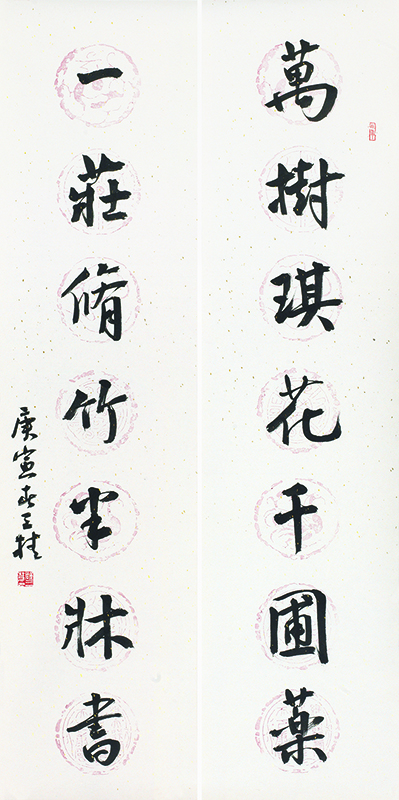 萬樹琪花千圃藥
一莊脩竹半牀書
庚寅春